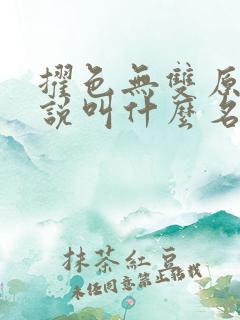 擢色無雙原
說叫什麼名
抹茶紅豆
未經同意禁止轉載